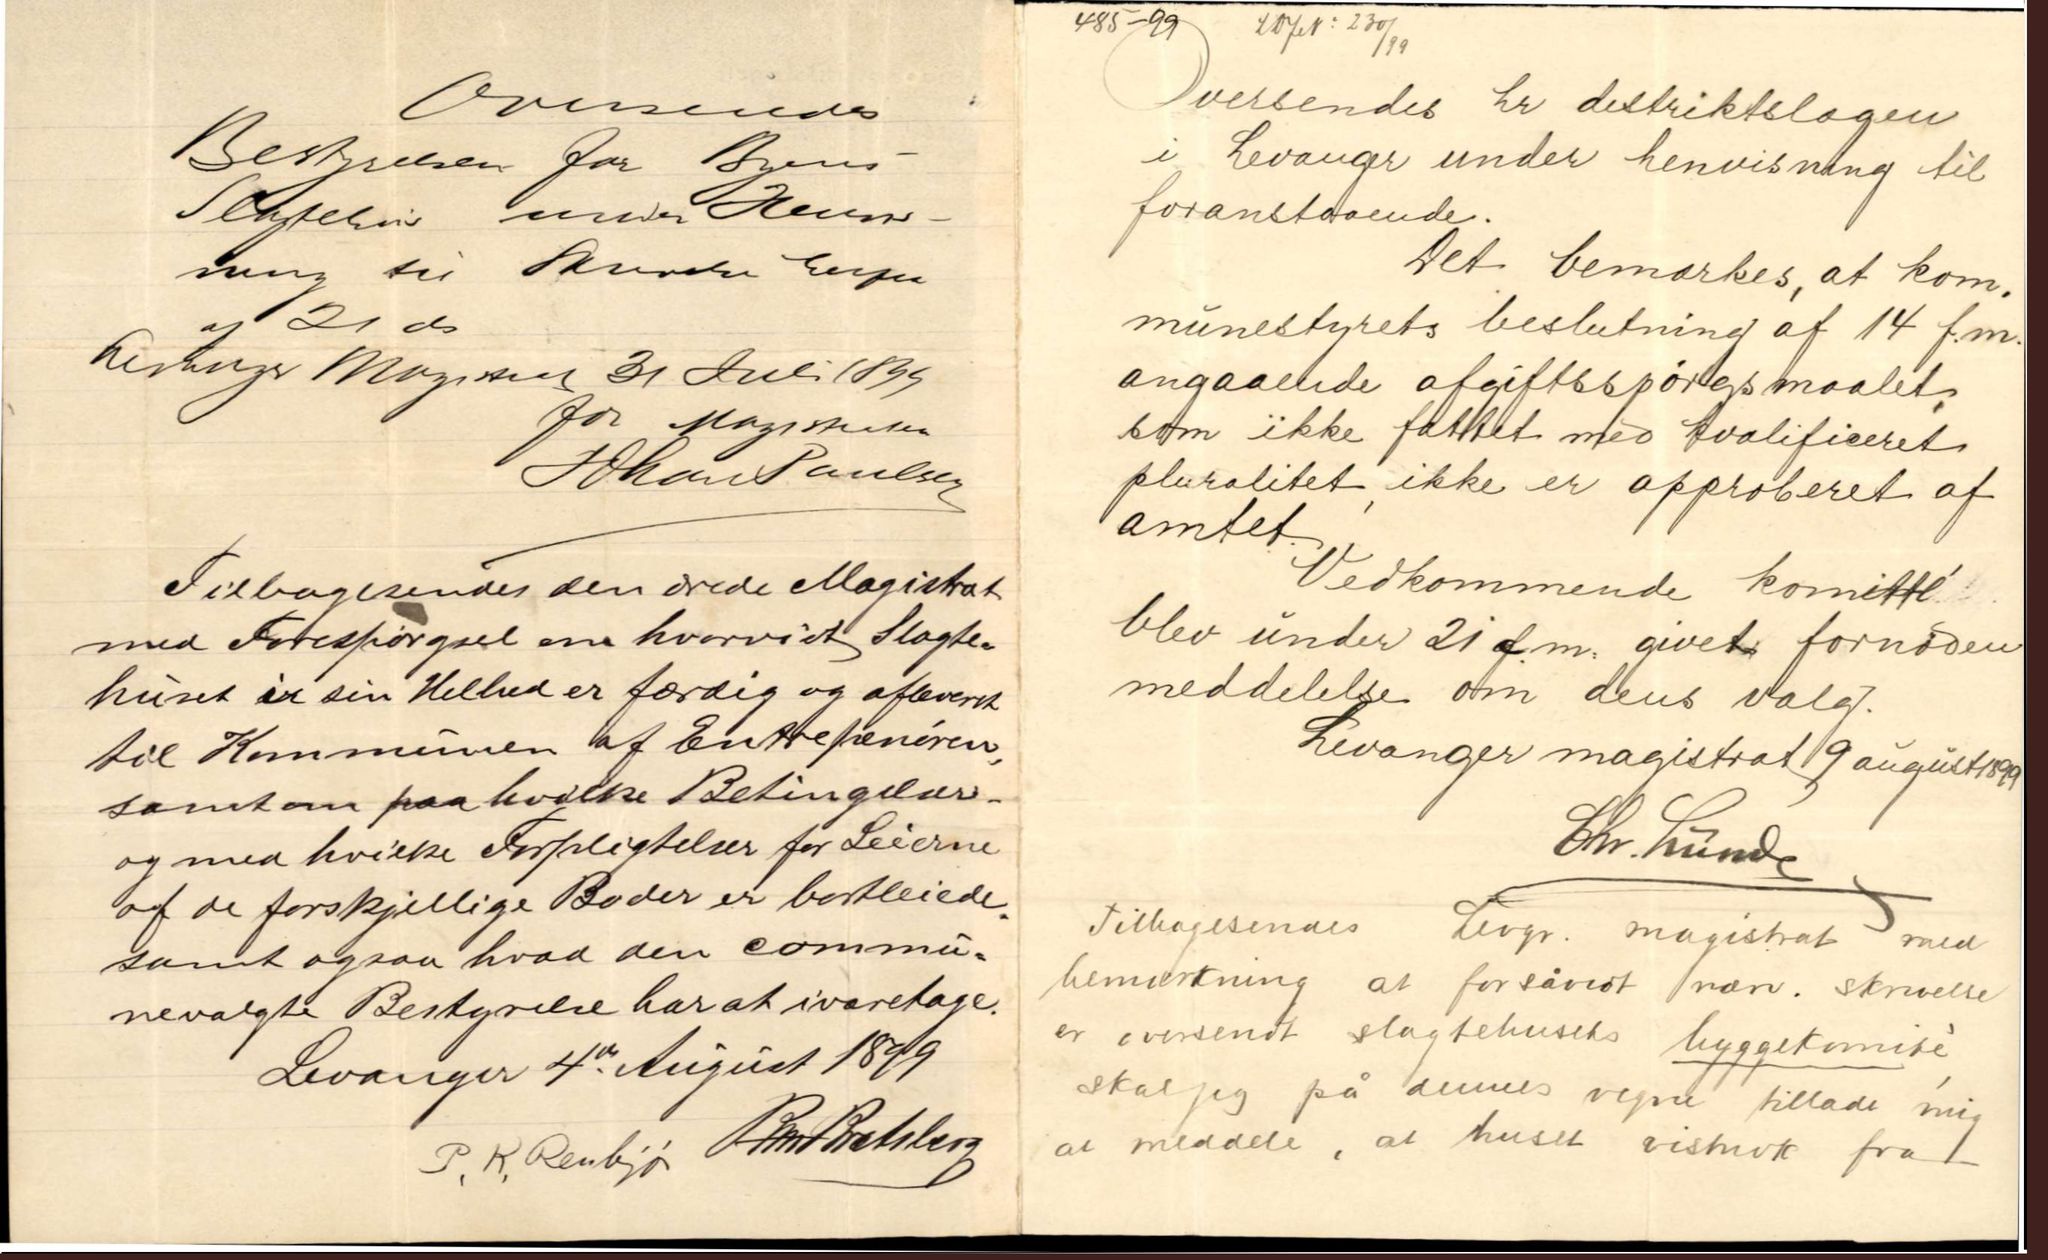 Oversendes
Bestyrelsen for Byens
Slagtehus under Henvis-
ning til
af 21 ds
Levanger Magistrat 31 Juli 1899
for Magistraten
Johan Paulsen
Tilbagesendes den ærede Magistrat
med Forespørgsel om hvorvidt Slagte-
huset i sin Helhed er færdig og afleveret
til Kommunen af Entreprenøren,
samt om paa hvilke Betingelser-
og med hvilke Forpligtelser for Leierne
af de forskjellige Boder er bortleiede.
samt ogsaa hvad den commu-
nevalgte Bestyrelse har at ivaretage.
Levanger 4de August 1899
P. K. Renbjør
485-99 230/99
Oversendes hr destriktslægen
i Levanger under henvisning til
foranstaaende.
Det bemærkes, at kom.
munestyrets beslutning af 14 f.m.
angaaende afgiftsspørgsmaalet,
som ikke fattet med kvalificeret
pluralitet, ikke er approberet af
amtet.
Vedkommende komitté
blev under 21 f.m. givet fornøden
meddelelse om dens valg.
Levanger magistrat 9 august 1899
Chr. Lünd
Tilbagesendes Levgr. magistrat med
bemærkning at forsåvidt nærv. skrivelse
er oversendt slagtehusets byggekomité,
skal jeg på dennes vegne tillade mig
at meddele, at huset vistnok fra